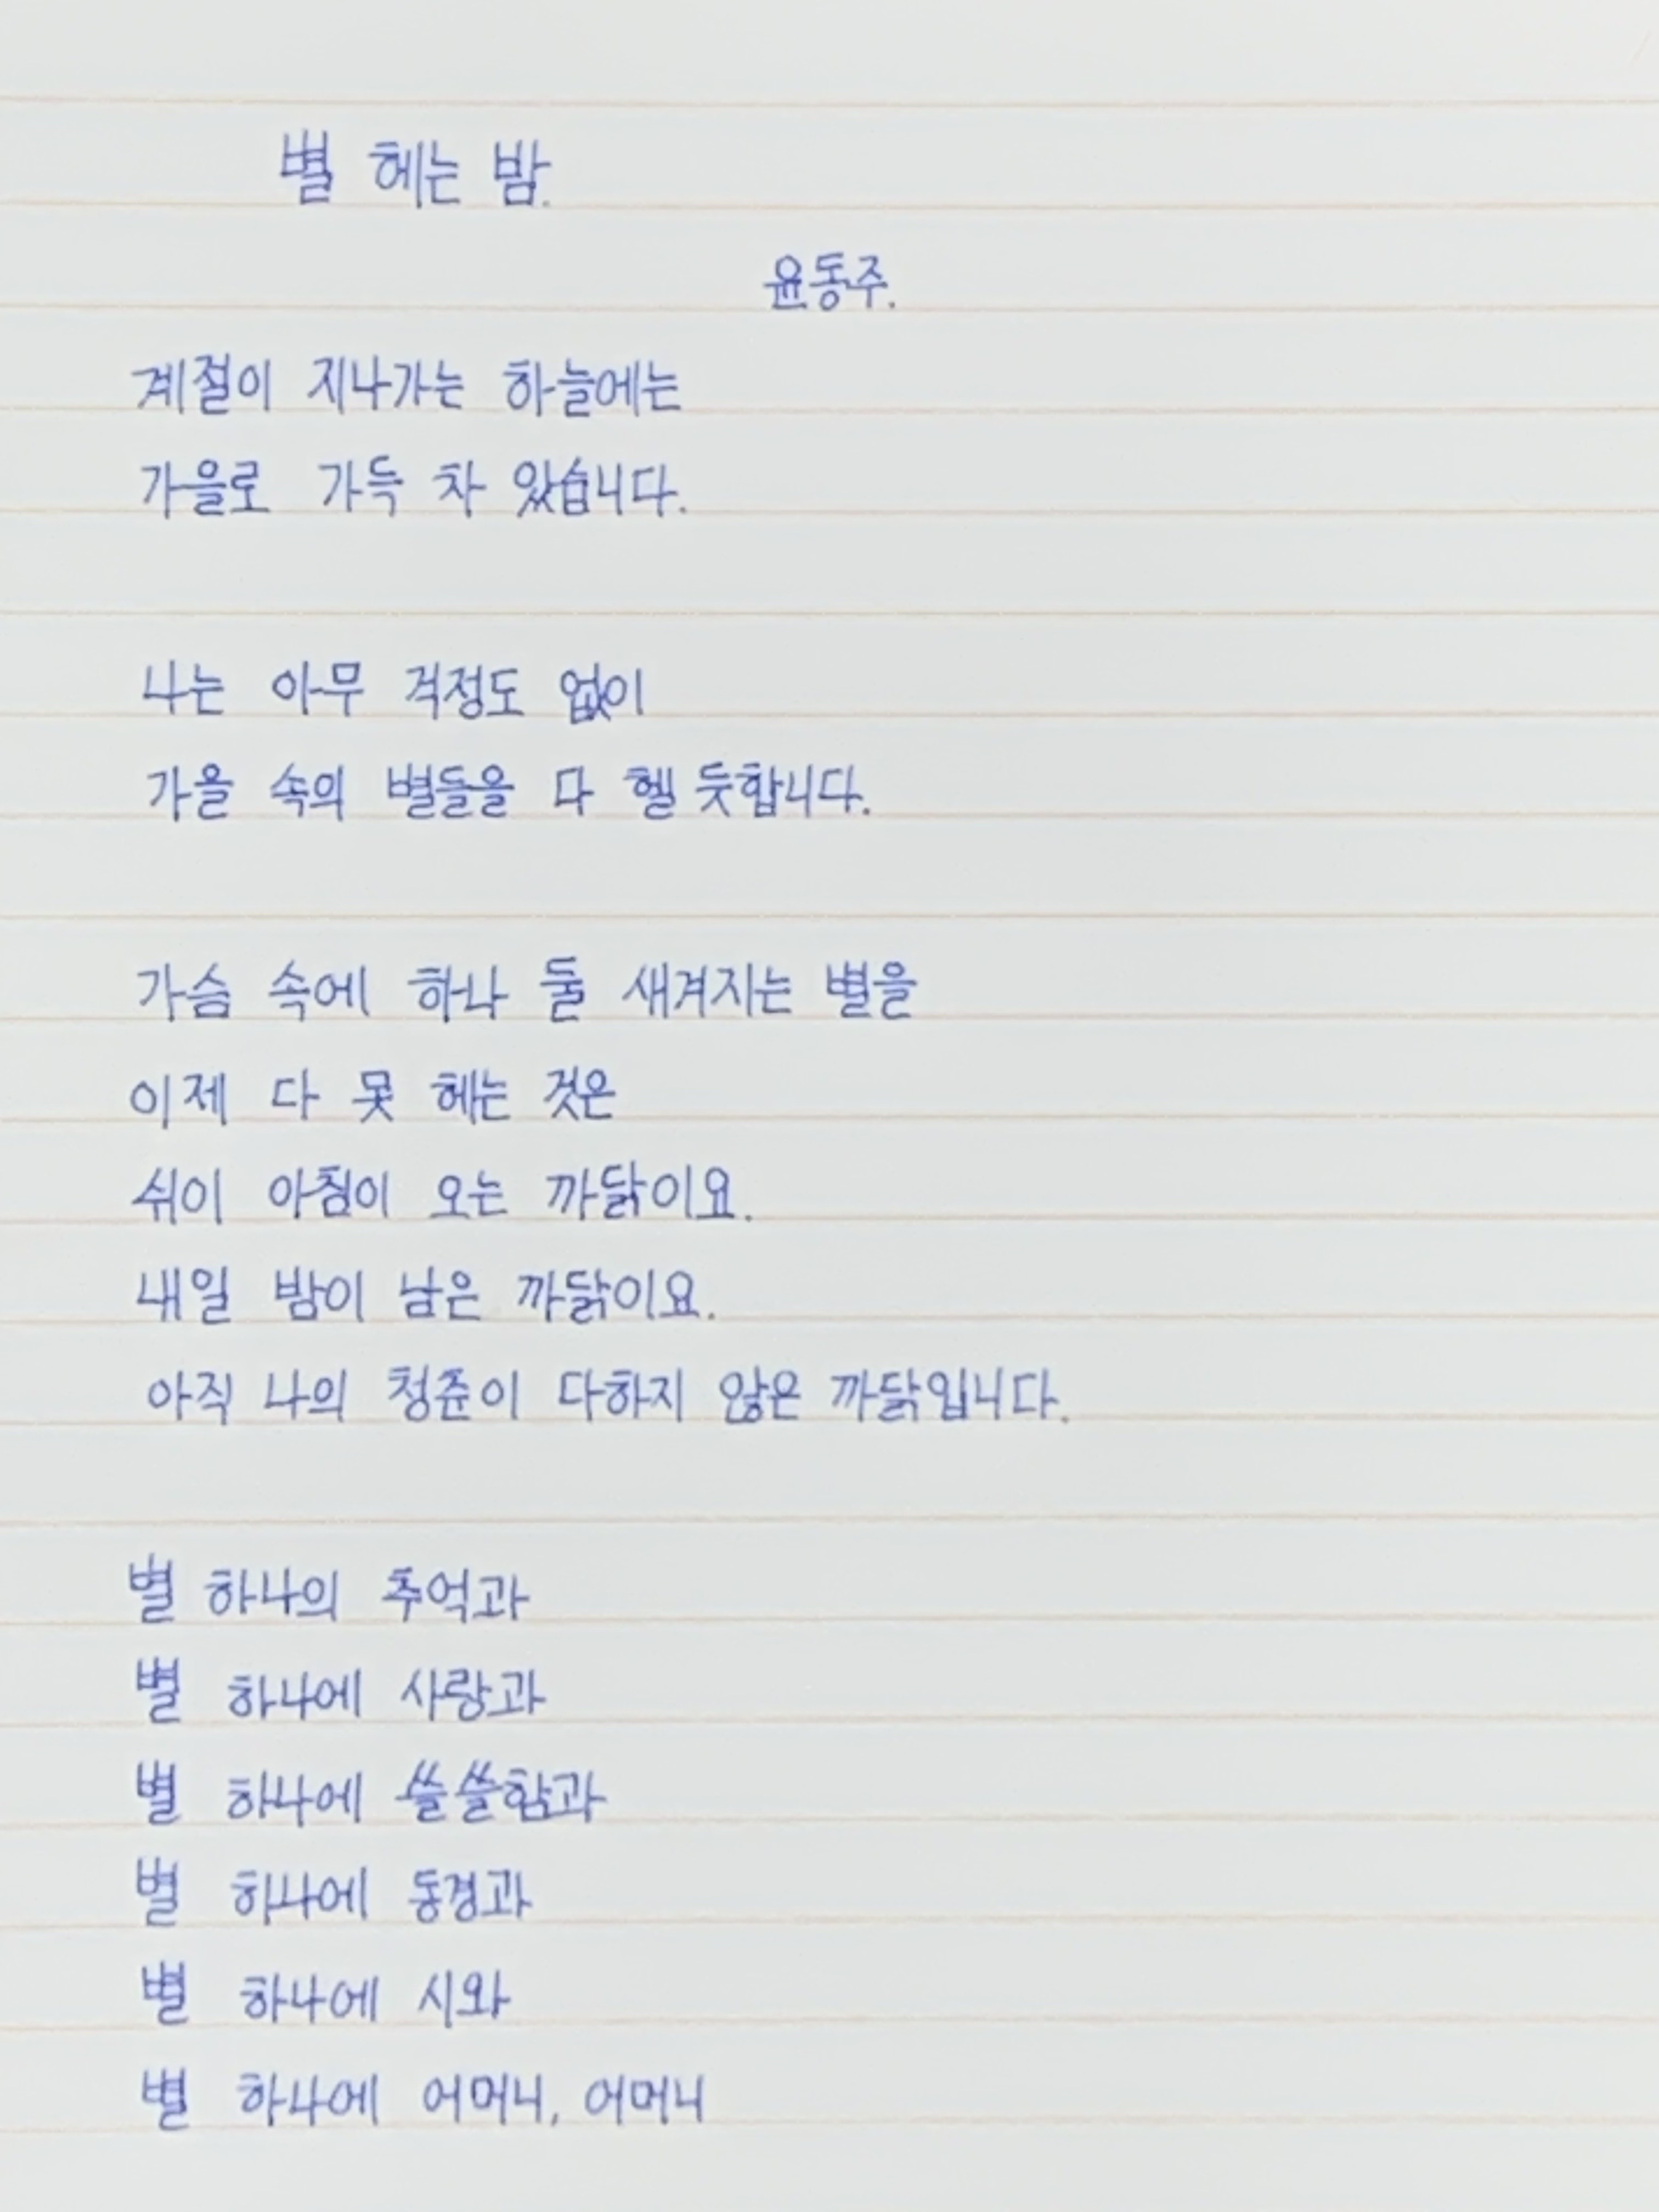 별 헤는 밤.
윤동주.
계절이 지나가는 하늘에는
가을로 가득 차 있습니다.
나는 아무 걱정도 없이
가을 속의 별들을 다 헬 듯합니다.
가슴 속에 하나 둘 새겨지는 별을
이제 다 못 헤는 것은
쉬이 아침이 오는 까닭이요.
내일 밤이 남은 까닭이요.
아직 나의 청춘이 다하지 않은 까닭입니다.
별 하나의 추억과
별 하나에 사랑과
별 하나에 쓸쓸함과
별 하나에 동경과
별 하나에 시와
별 하나에 어머니, 어머니